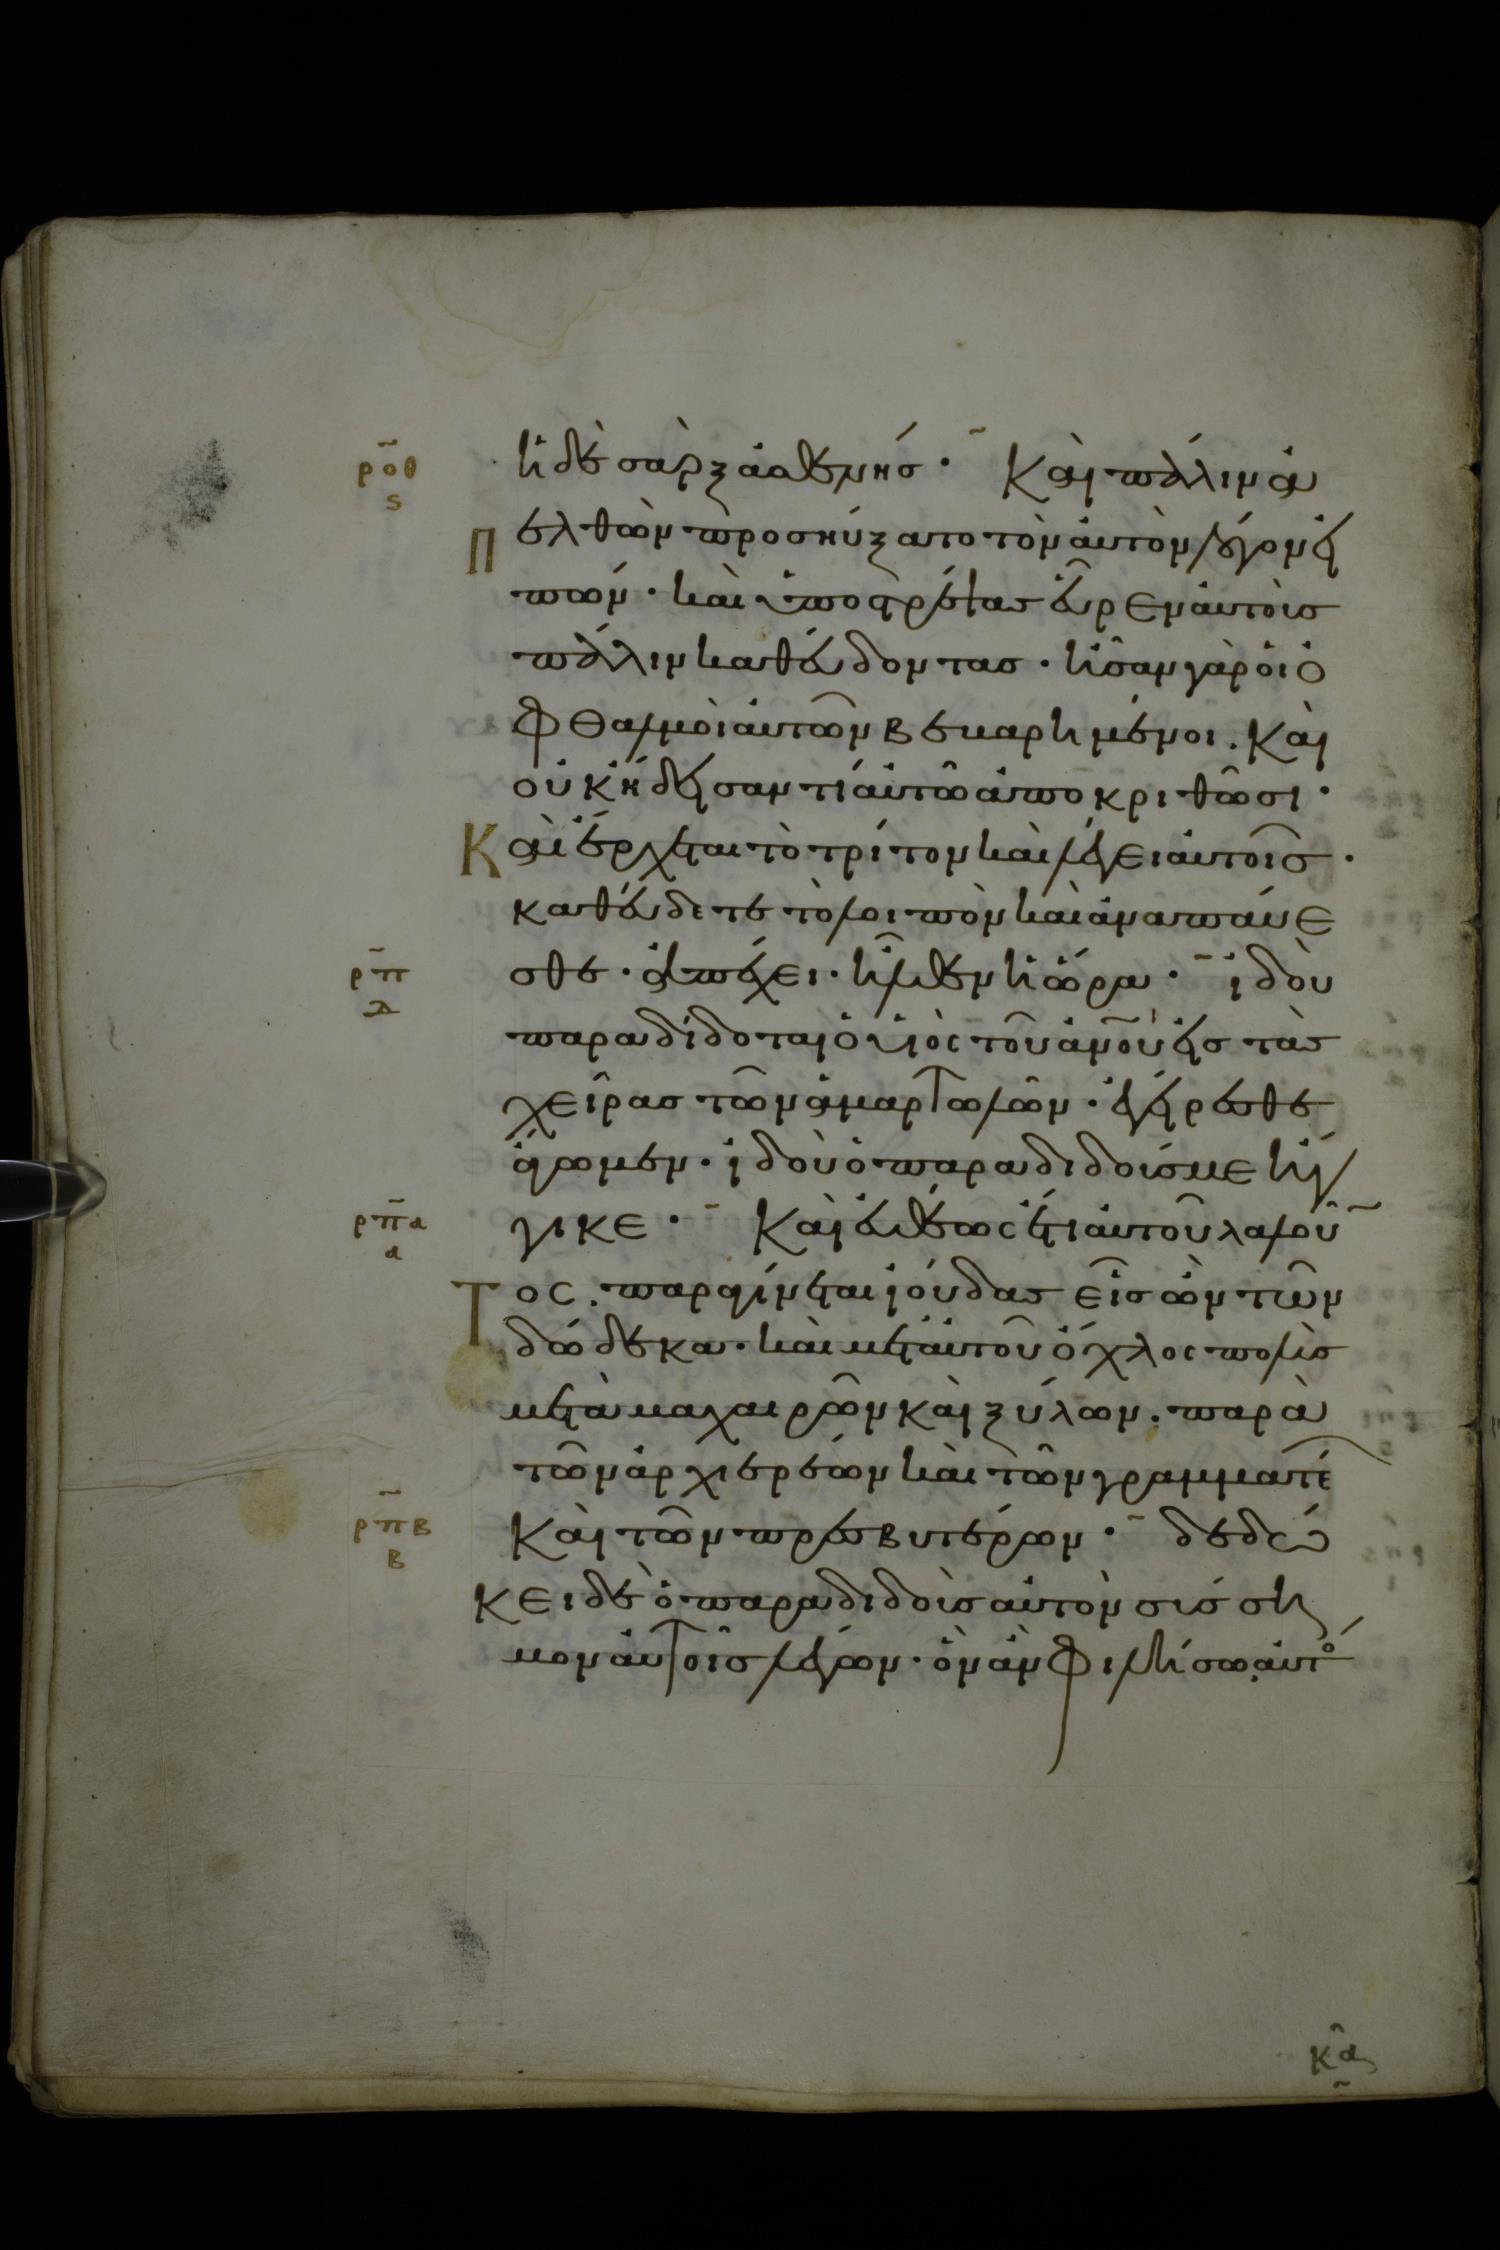 ροθ
ς
ἡ δὲ σὰρξ ἀσθενής · Καὶ πάλιν ἀ
πελθὼν προσηύξατο τὸν αὐτὸν λόγον εἰ
πών · καὶ ὑποστρέψας εὗρεν αὐτοὺς
πάλιν καθεύδοντας · ἦσαν γὰρ οἱ ὀ
φθαλμοὶ αὐτῶν βεβαρημένοι . Καὶ
οὐκ ἤδεισαν τί αὐτῶ ἀποκριθῶσι ·
Καὶ ἔρχεται τὸ τρίτον καὶ λέγει αὐτοῖς ·
καθεύδετε τὸ λοιπὸν καὶ ἀναπαύε
ρπ
δ
σθε · ἀπέχει · ἦλθεν ἡ ὥρα · ἰδοὺ
παραδίδοται ὁ υἱὸς τοῦ ἀνου εἰς τὰς
χεῖρας τῶν ἁμαρτωλῶν · ἐγείρεσθε
ἄγωμεν · ἰδοὺ ὁ παραδιδούς με ἤγ
ρπα
α
γικε · Καὶ εὐθέως ἔτι αὐτοῦ λαλοῦ
τος . παραγίνεται ἰούδας εἷς ὢν τῶν
δώδεκα · καὶ μετ αὐτοῦ ὄχλος πολὺς
μετὰ μαχαιρῶν καὶ ξύλων . παρὰ
τῶν ἀρχιερέων καὶ τῶν γραμματέ
ρπβ
β
Καὶ τῶν πρεσβυτέρων · δεδώ
κει δὲ ὁ παραδιδοὺς αὐτὸν σύσση
μον αὐτοῖς λέγων · ὃν ἂν φιλήσω, αὐτό
κα